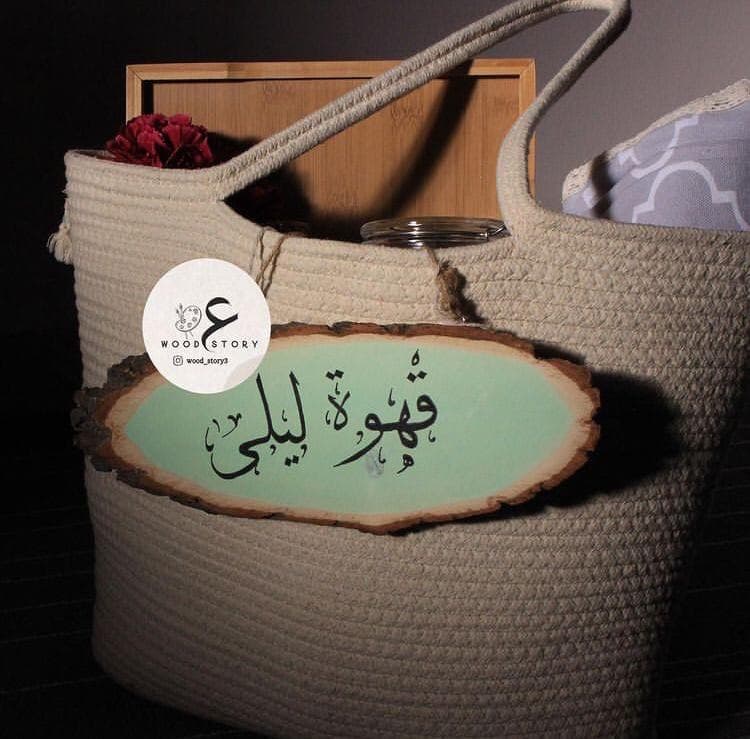 ع
WOOD STORY
wood_story3
قهوة ليلى